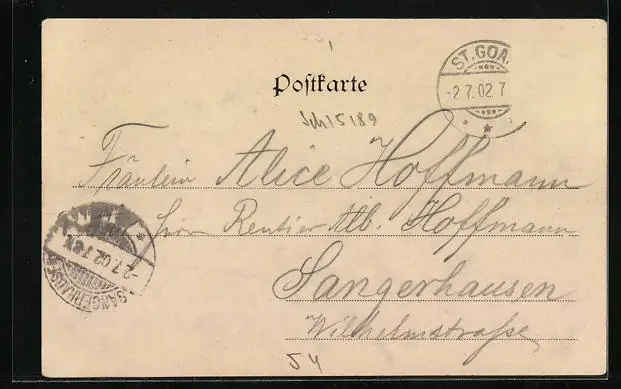 Postkarte
ST. GOA.
-2.7.02.7
Sch15189
Fräulein Alice Hoffmann
Rentier Alb. Hoffmann
Sangerhausen
Wilhelmstraße
-2.7.02.7-8N.
SANGERHAUSEN
54